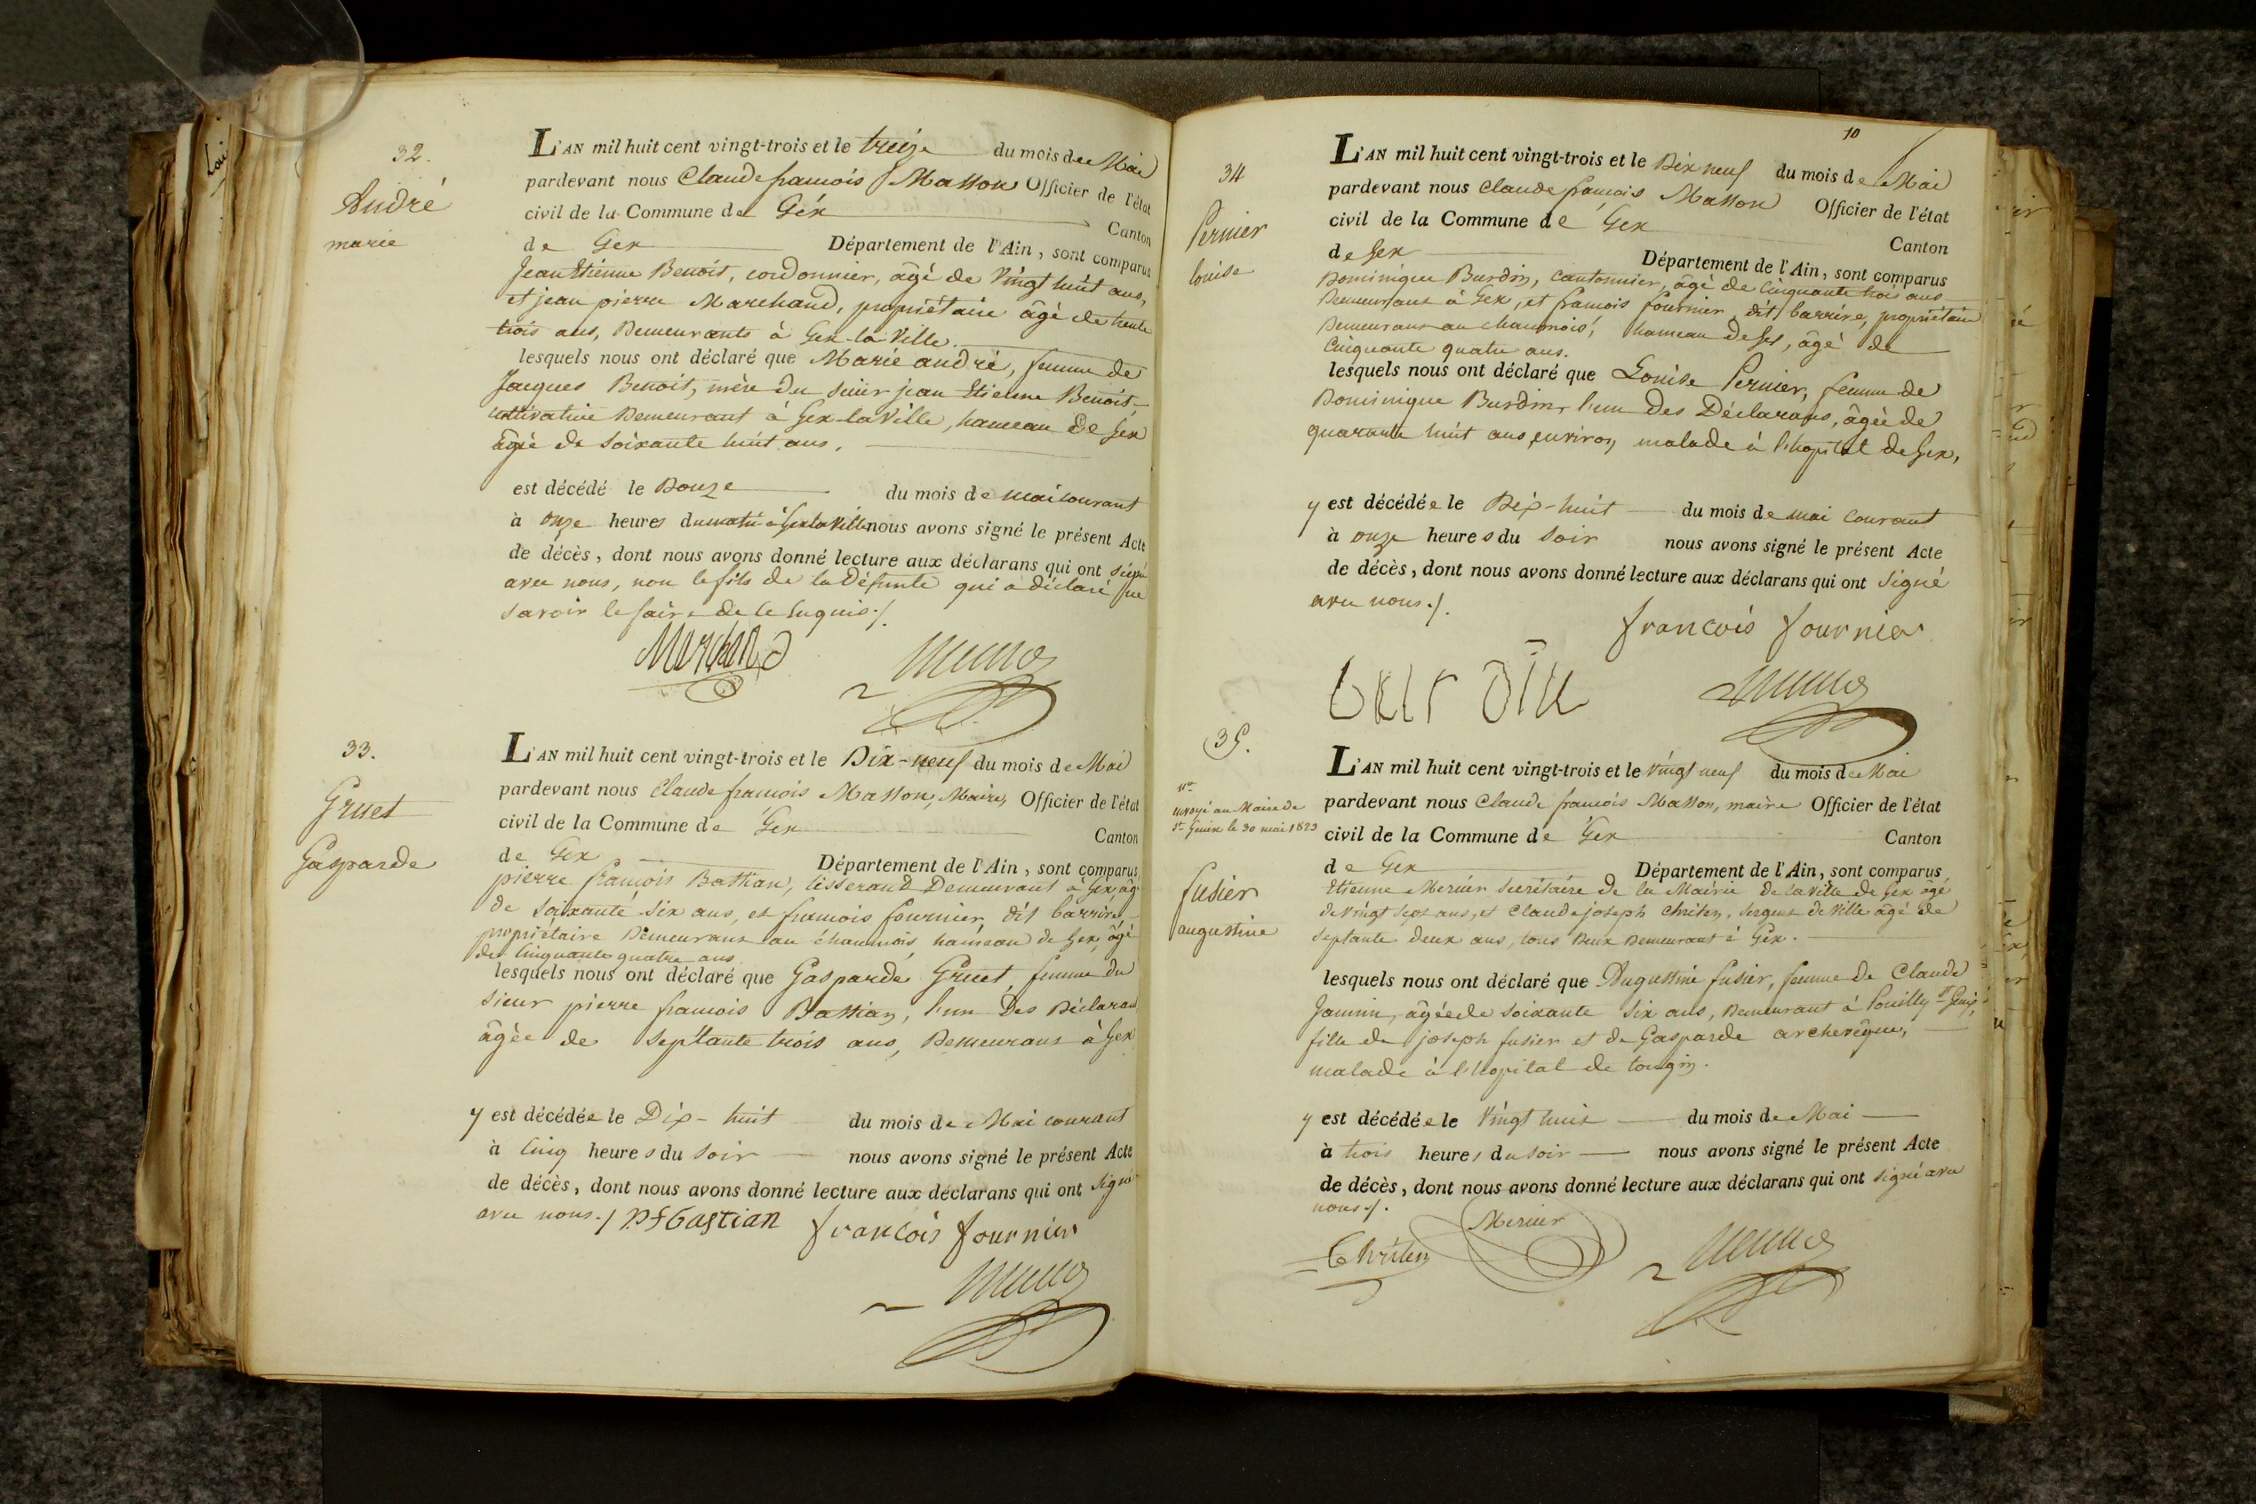 32.
André
marie
L'AN mil huit cent vingt-trois et le treize du mois de Mai
pardevant nous Claude francois Masson Officier de l'état
civil de la Commune de Géx Canton
de Gex Département de l'Ain, sont comparus
Jean Etienne Benoit, cordonnier, âgé de vingt huit ans,
et jean pierre Marchand, propriétaire âgé de trente
trois ans, Demeurants à Gex-la-Ville.
lesquels nous ont déclaré que Marie andré, femme de
Jacques Benoit, mère du sieur jean Etienne Benoit,
cultivatrice Demeurant à Gex-la Ville, hameau de Gex
âgée de soixante huit ans.
est décédé le Douze du mois de mai courant
à onze heures du matin à Gex la Ville nous avons signé le présent Acte
de décès, dont nous avons donné lecture aux déclarans qui ont signé
avec nous, non le fils de la Défunte qui a déclaré ne
savoir le faire de ce enquis./.
33.
Gruet
Gasparde
L'AN mil huit cent vingt-trois et le Dix-neuf du mois de Mai
pardevant nous Claude francois Masson, Maire, Officier de l'état
civil de la Commune de Gex Canton
de Gex Département de l'Ain, sont comparus
pierre francois Bastian, tisserand Demeurant à Gex âgé
de soixante six ans, et francois fournier, dit barrière,
propriétaire Demeurant au chaumois, hameau de Gex, âgé
de Cinquante quatre ans
lesquels nous ont déclaré que Gasparde Gruet, femme du
sieur pierre francois Bastian, l'un Des Déclarans
âgée de septante trois ans, Demeurant à Gex
y est décédée le Dix-huit du mois de Mai courant
à Cinq heures du soir nous avons signé le présent Acte
de décès, dont nous avons donné lecture aux déclarans qui ont signé
avec nous./ pf bastian francois fournier
10
34
Pernier
louise
L'AN mil huit cent vingt-trois et le Dix neuf du mois de Mai
pardevant nous Claude francois Masson Officier de l'état
civil de la Commune de Gex Canton
de Gex Département de l'Ain, sont comparus
Dominique Burdin, Cantonnier, âgé de Cinquante trois ans
Demeurant à Gex, et francois fournier dit barrière, propriétaire
Demeurant au chaumois, hameau de Gex, âgé de
Cinquante quatre ans.
lesquels nous ont déclaré que Louise Pernier, femme de
Dominique Burdin, l'un Des Déclarans, âgée de
quarante huit ans environ, malade à l'hopital de Gex,
y est décédée le Dix-huit du mois de mai courant
à onze heures du soir nous avons signé le présent Acte
de décès, dont nous avons donné lecture aux déclarans qui ont signé
avec nous./.
francois fournier
35.
envoyé au Maire de
St Genix le 30 mai 1823
fusier
augustine
L'AN mil huit cent vingt-trois et le vingt neuf du mois de Mai
pardevant nous Claude francois Masson, maire Officier de l'état
civil de la Commune de Gex Canton
de Gex Département de l'Ain, sont comparus
Etienne Mercier secrétaire de la Mairie de la ville de Gex âgé
de vingt sept ans, et Claude joseph Christen, sergent de ville âgé de
septante deux ans, tous Deux Demeurant à Gex.
lesquels nous ont déclaré que Augustine fusier, femme de Claude
Jannin, âgée de soixante six ans, Demeurant à Pouilly St Genix,
fille de joseph fusier et de Gasparde archevêque,
malade à l'hopital de tougin.
y est décédée le Vingt huit du mois de Mai
à trois heures du soir nous avons signé le présent Acte
de décès, dont nous avons donné lecture aux déclarans qui ont signé avec
nous./.
Mercier
Christen